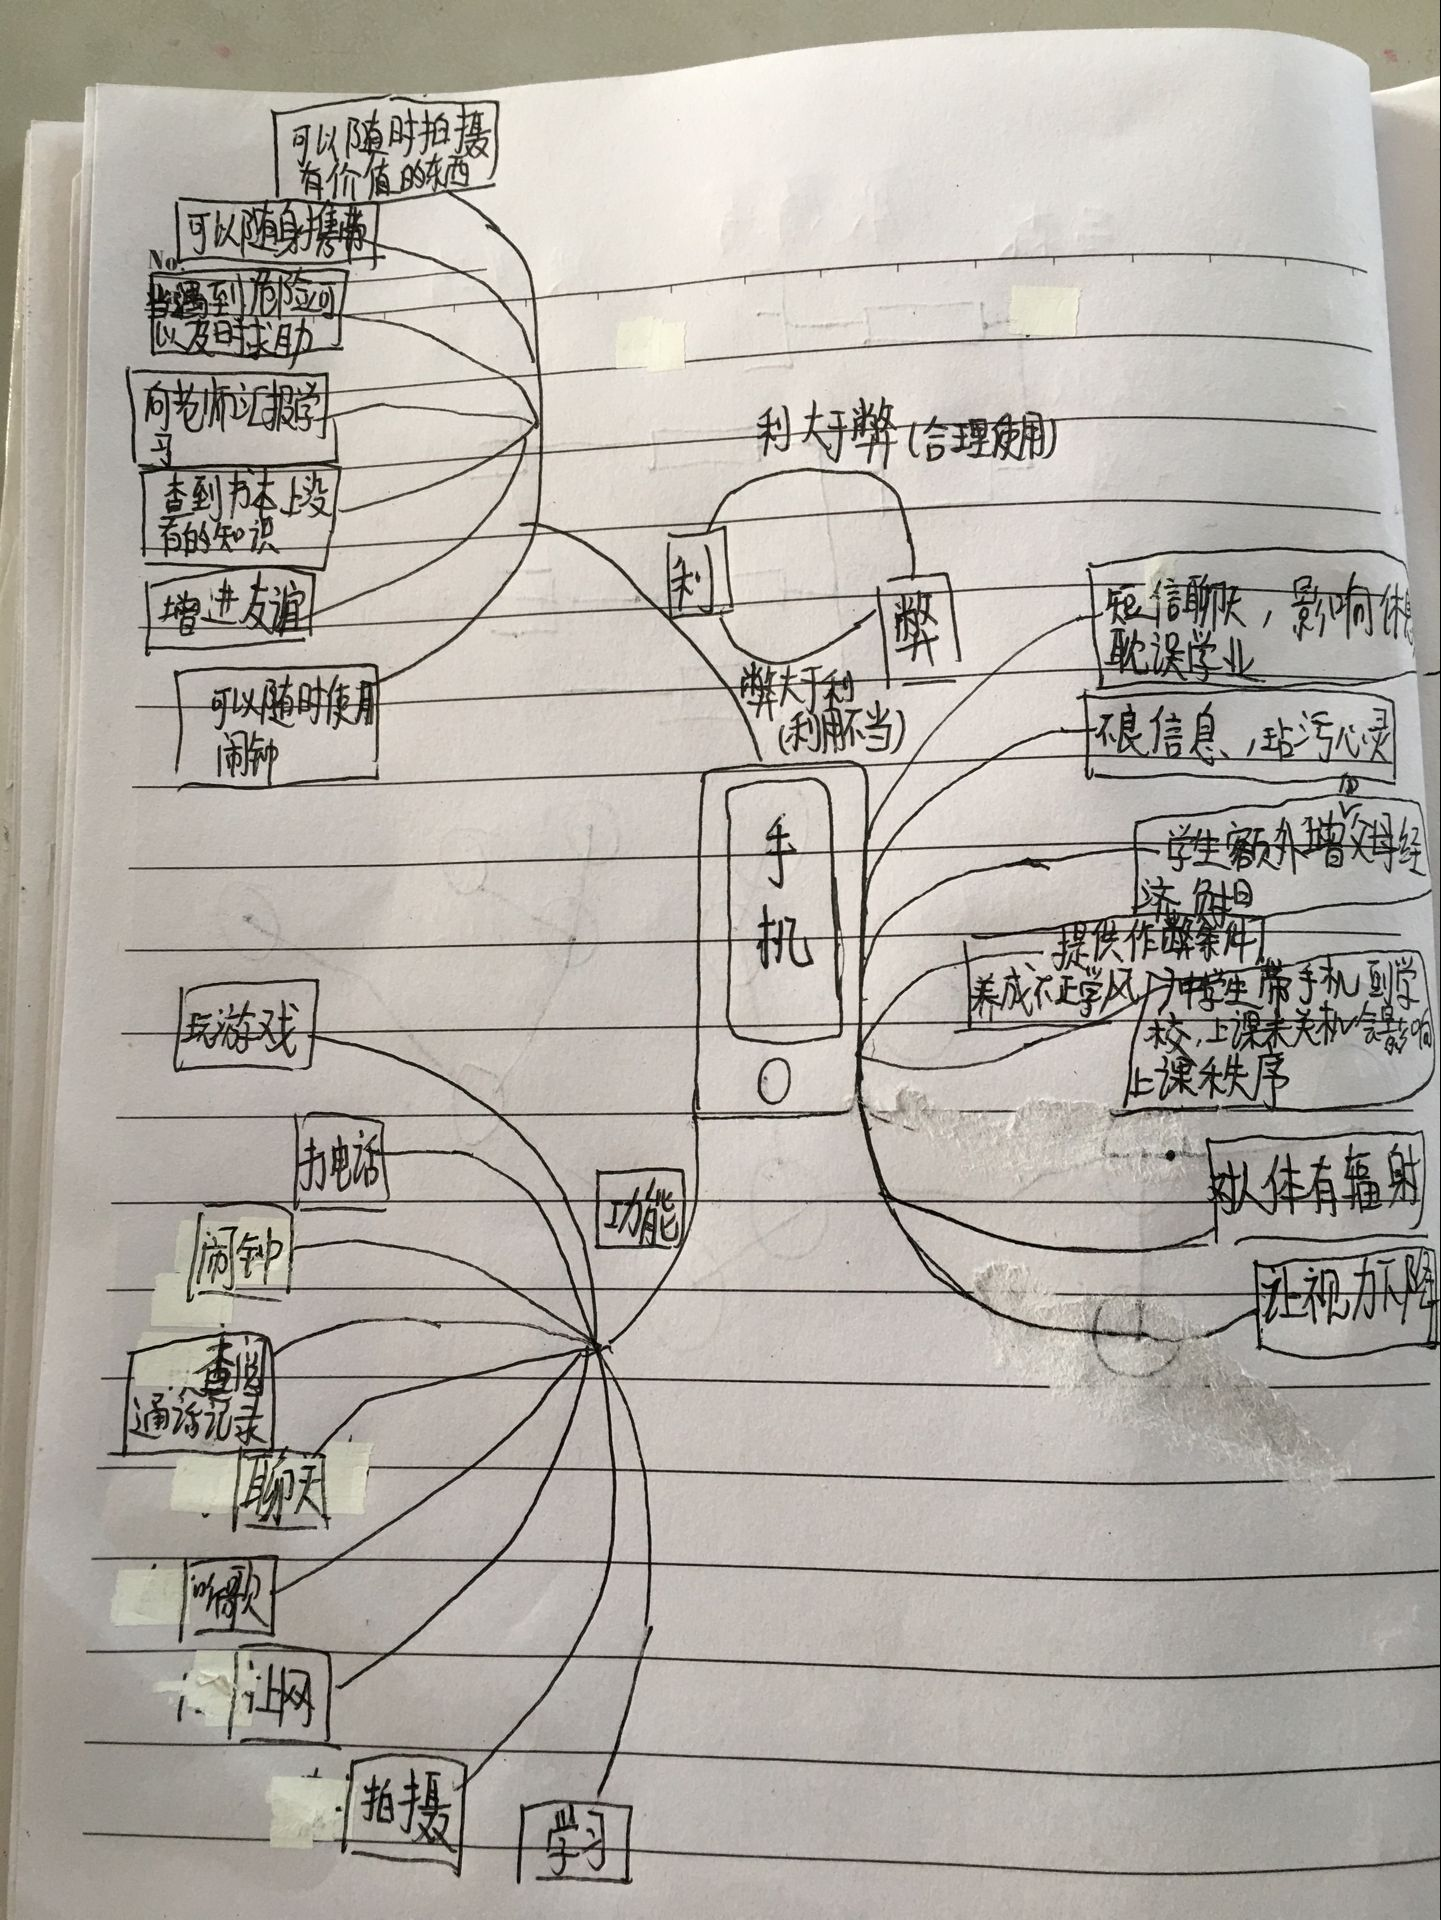 可以随时拍摄
有价值的东西
可以随身携带
No.
当遇到危险可
以及时求助
向老师汇报学
习
查到书本上没
有的知识
增进友谊
可以随时使用
闹钟
利大于弊(合理使用)
利
弊
弊大于利
(利用不当)
手
机
短信聊天，影响休息
耽误学业
不良信息，玷污心灵
加
学生额外增父母经
济负担
提供作弊条件
养成不正学风
中学生带手机到学
校，上课未关机会影响
上课秩序
对人体有辐射
让视力下降
功能
玩游戏
打电话
闹钟
查阅
通话记录
聊天
听歌
上网
拍摄
学习